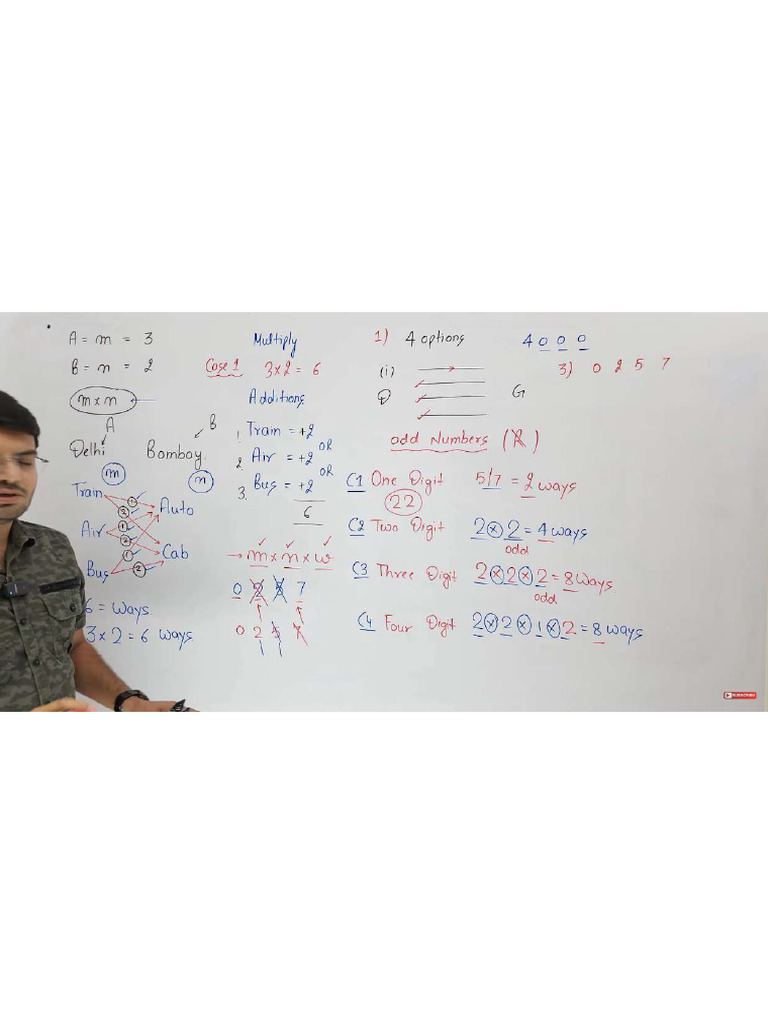 A = m = 3
B = n = 2
m × n
A
B
Delhi
Bombay
m
n
Train
Air
Bus
1
2
1
2
1
2
Auto
Cab
6 = ways
3 × 2 = 6 ways
Multiply
Case 1 3×2 = 6
Additions
1. Train = +2
OR
2. Air = +2
OR
3. Bus = +2
6
→ m × n × w
0 2 5 7
0 2 5 7
1) 4 options
(i)
4 0 0 0
3) 0 2 5 7
odd Numbers (R)
C1 One Digit 5/7 = 2 ways
22
C2 Two Digit 2 × 2 = 4 ways
odd
C3 Three Digit 2 × 2 × 2 = 8 ways
odd
C4 Four Digit 2 × 2 × 1 × 2 = 8 ways
SUBSCRIBE